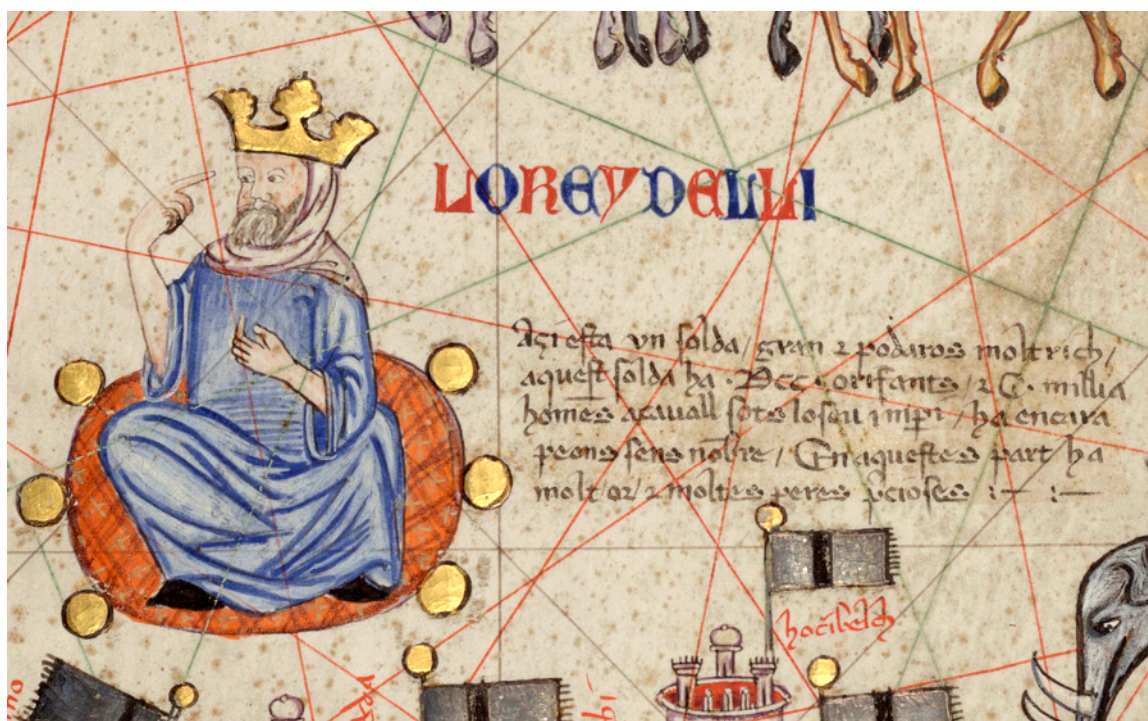 LO REY DELLI
Açi esta vn solda / gran 2 podaros molt rich /
aquest solda ha · DCC · orifants / 2 C · millia
homes acavall sots lo seu imperi / ha encara
peons sens nõbre / En aquestes part ha
molt or / 2 moltes peres pcioses :— :—
hocibelch